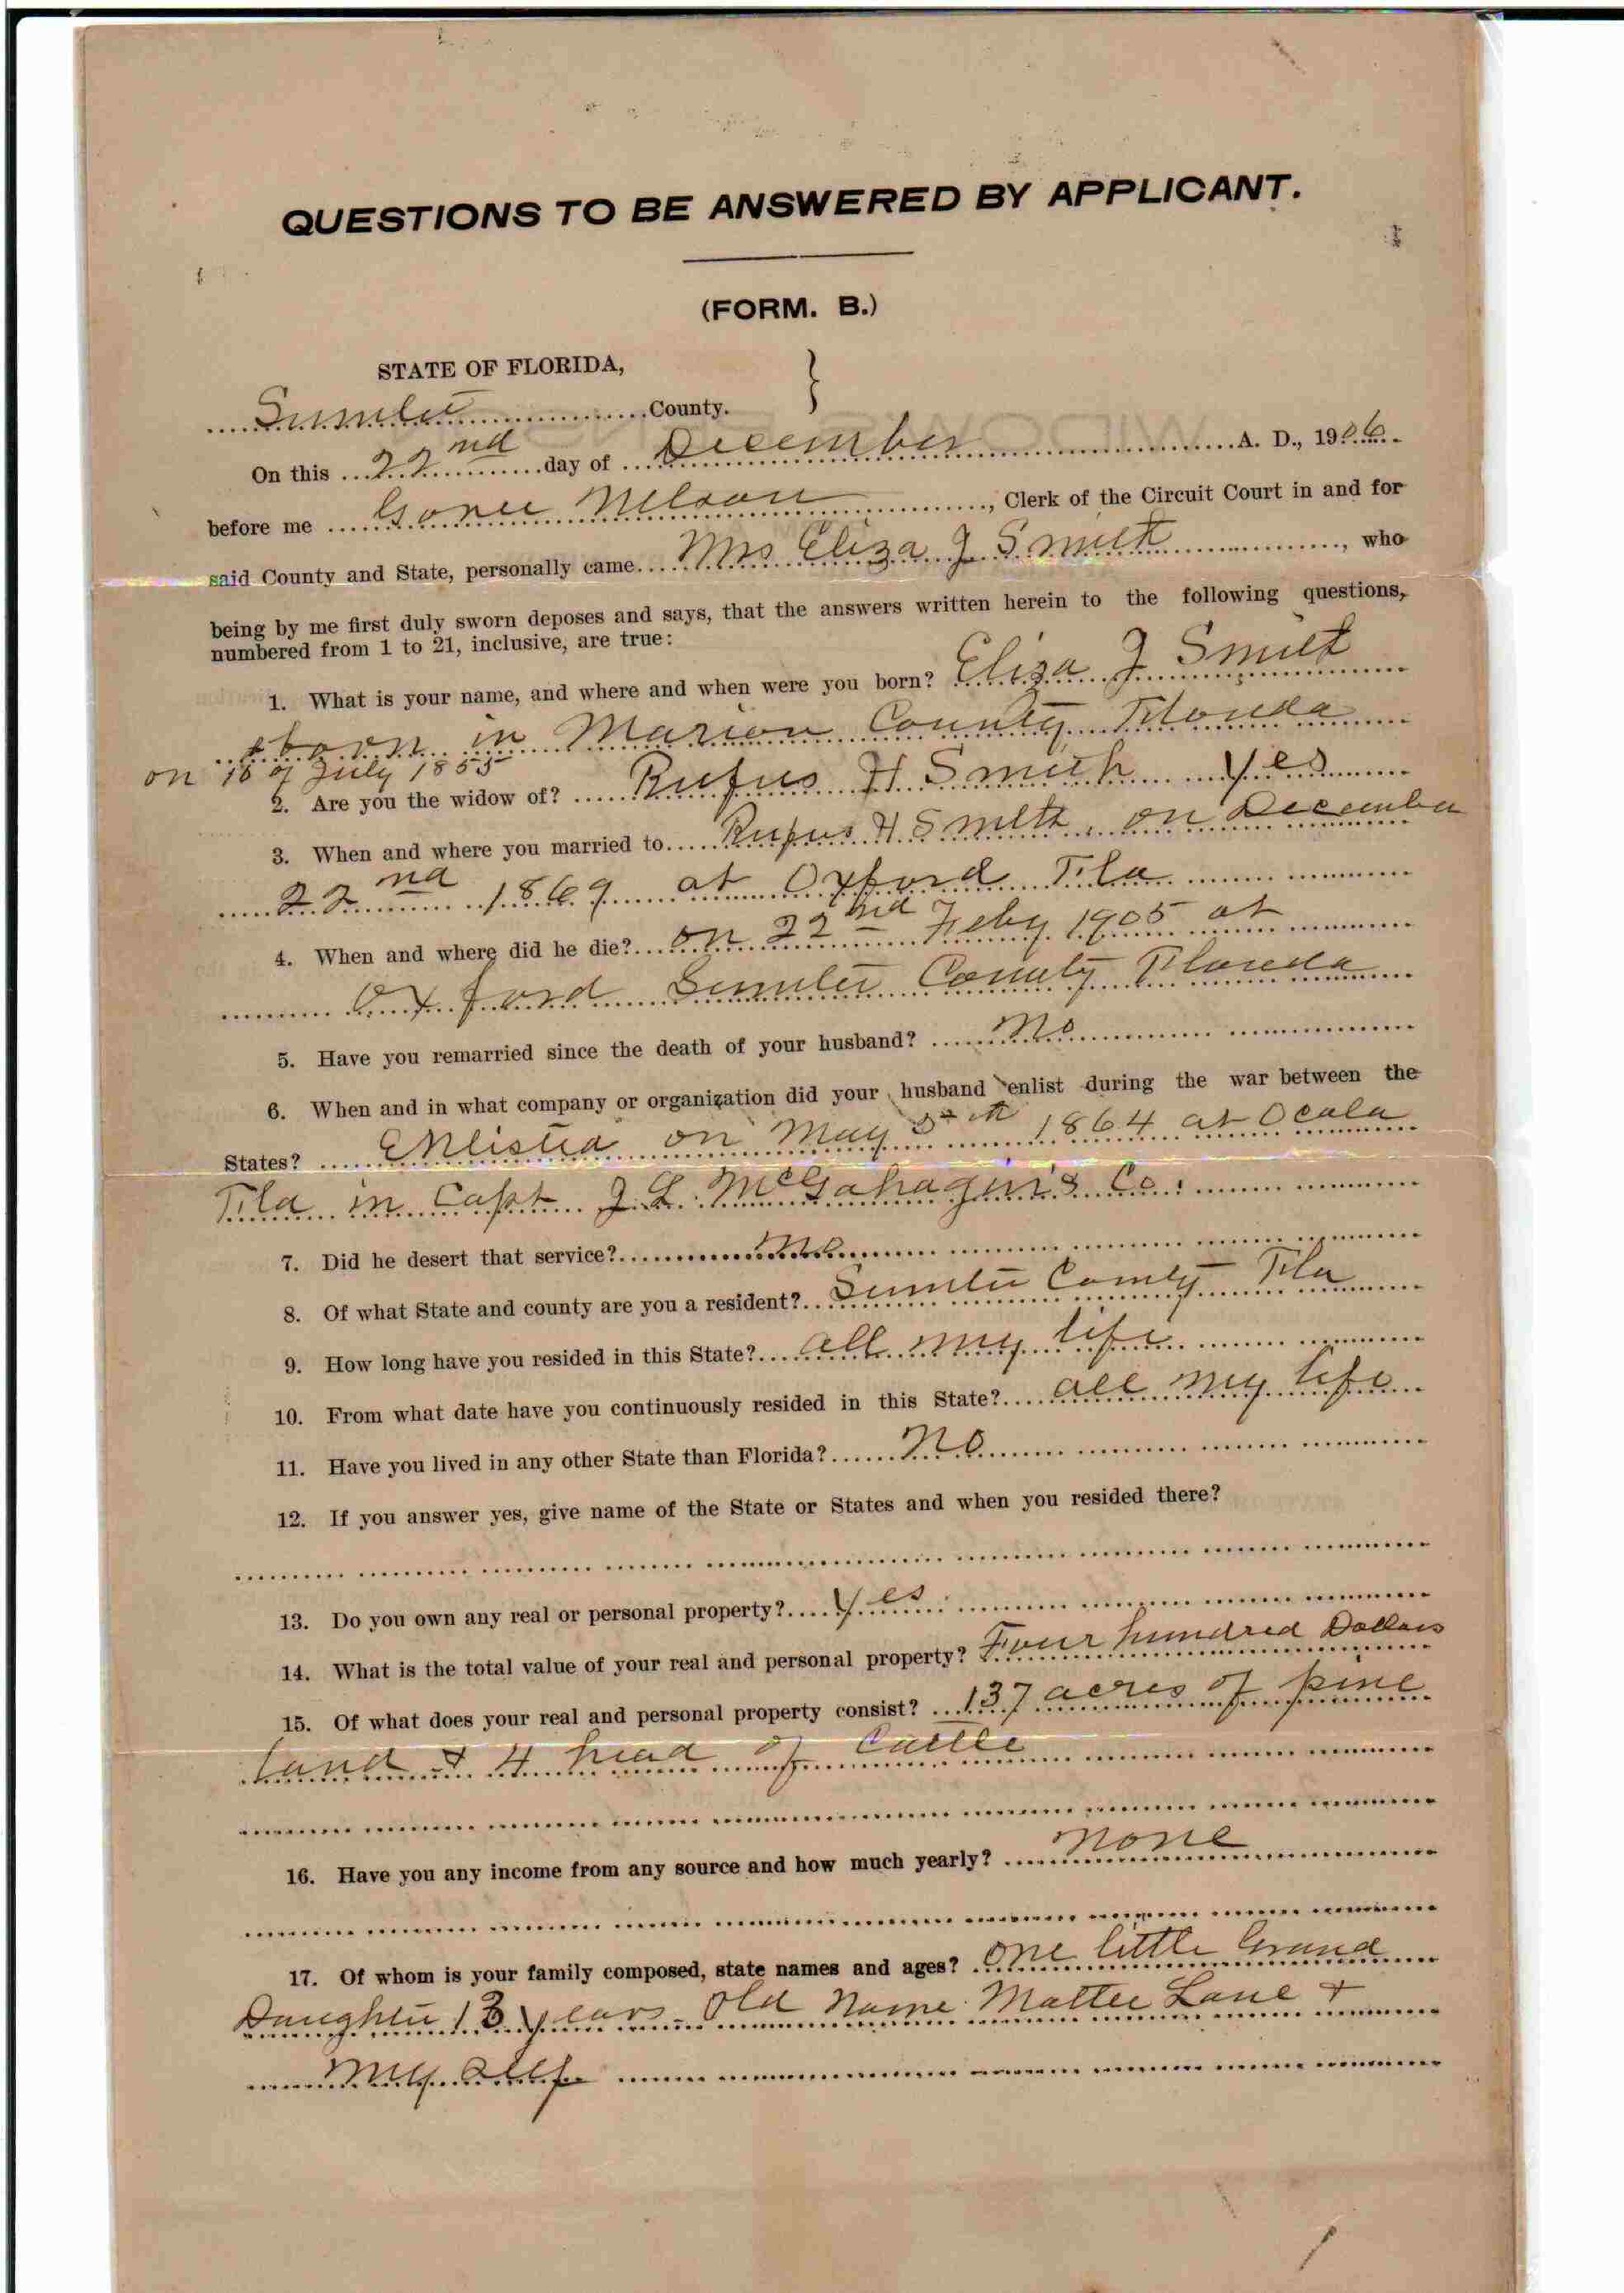 QUESTIONS TO BE ANSWERED BY APPLICANT.
(FORM. B.)
STATE OF FLORIDA,
Sumter County.
On this 22nd day of December A. D., 1906
before me Nelson, Clerk of the Circuit Court in and for
said County and State, personally came Mrs Eliza J Smith, who
being by me first duly sworn deposes and says, that the answers written herein to the following questions,
numbered from 1 to 21, inclusive, are true:
1. What is your name, and where and when were you born? Eliza J Smith
born in Marion County Florida
on 16 of July 1855
2. Are you the widow of? Rufus H Smith yes
3. When and where you married to Rufus H Smith, on December
22nd 1869 at Oxford Fla
4. When and where did he die? on 22nd Feby 1905 at
Oxford Sumter County Florida
5. Have you remarried since the death of your husband? No
6. When and in what company or organization did your husband enlist during the war between the
States? Enlisted on May 5th 1864 at Ocala
Fla in Capt J L McGahagin's Co.
7. Did he desert that service? No
8. Of what State and county are you a resident? Sumter County Fla
9. How long have you resided in this State? all my life
10. From what date have you continuously resided in this State? all my life
11. Have you lived in any other State than Florida? No
12. If you answer yes, give name of the State or States and when you resided there?
13. Do you own any real or personal property? yes
14. What is the total value of your real and personal property? Four hundred Dollars
15. Of what does your real and personal property consist? 137 acres of pine
land & 4 head of Cattle
16. Have you any income from any source and how much yearly? None
17. Of whom is your family composed, state names and ages? One little Grand
Daughter 13 years old Name Mattee Lane &
my self